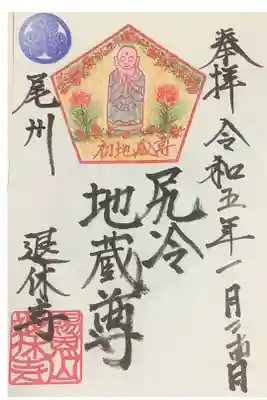 奉拝 令和五年一月二十四日
尻冷
地蔵尊
初地蔵尊
尾州
退休寺